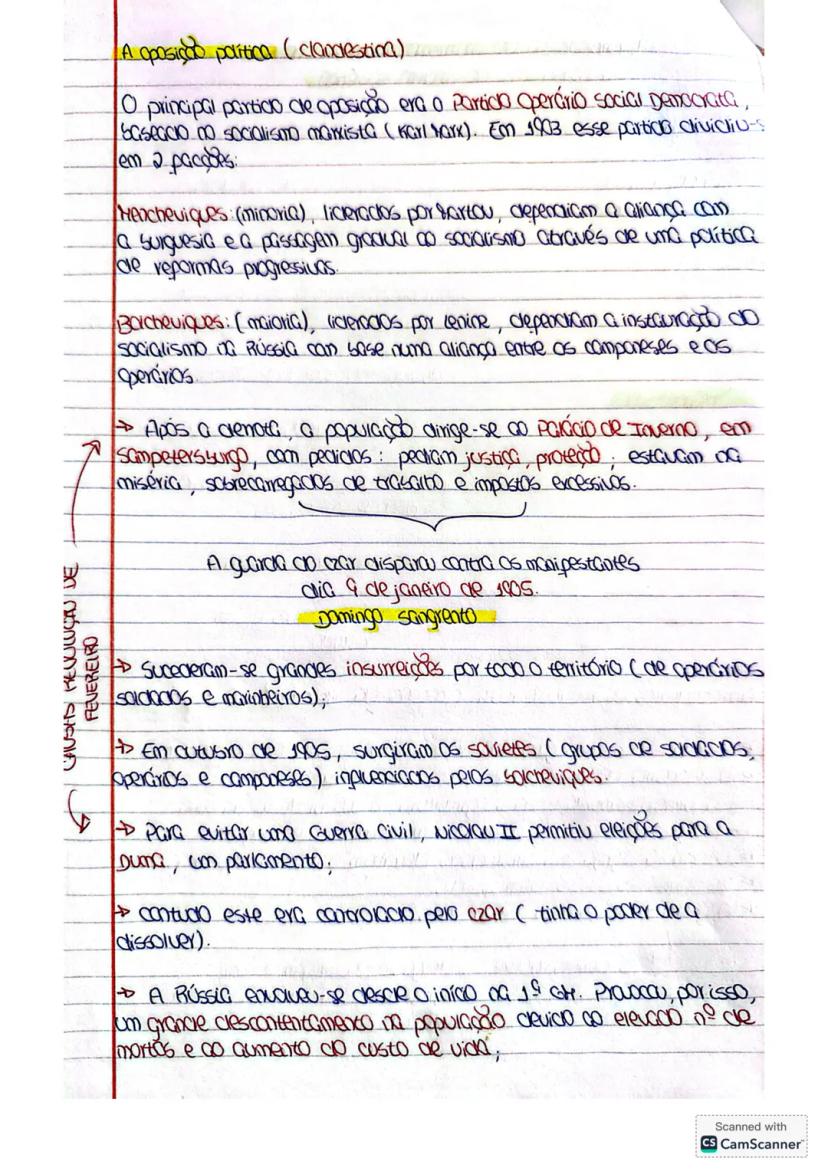 A oposição política (clandestina)
O principal partido de oposição era o Partido Operário Social Democrata,
baseado no socialismo marxista (Karl Marx). Em 1903 esse partido dividiu-s
em 2 facções:
Mencheviques: (minoria), liderados por Martov, defendiam a aliança com
a burguesia e a passagem gradual ao socialismo através de uma política
de reformas progressivas.
Bolcheviques: (maioria), liderados por Lenine, defendiam a instauração do
socialismo na Rússia com base numa aliança entre os camponeses e os
operários.
→ Após a derrota, a população dirige-se ao Palácio de Inverno, em
Sampetersburgo, com pedidos: pediam justiça, proteção; estavam na
miséria, sobrecarregados de trabalho e impostos excessivos.
A guarda do czar dispara contra os manifestantes
dia 9 de janeiro de 1905.
Domingo sangrento
CAUSAS REVOLUÇÃO DE
FEVEREIRO
→ Sucederam-se grandes insurreições por todo o território (de operários
soldados e marinheiros);
→ Em outubro de 1905, surgiram os sovietes (grupos de soldados,
operários e camponeses) influenciados pelos bolcheviques.
→ Para evitar uma Guerra Civil, Nicolau II permitiu eleições para a
Duma, um parlamento;
→ Contudo este era controlado pelo czar (tinha o poder de a
dissolver).
→ A Rússia envolveu-se desde o início na 1ª GM. Provocou, por isso,
um grande descontentamento na população devido ao elevado nº de
mortos e ao aumento do custo de vida;
Scanned with
CS CamScanner